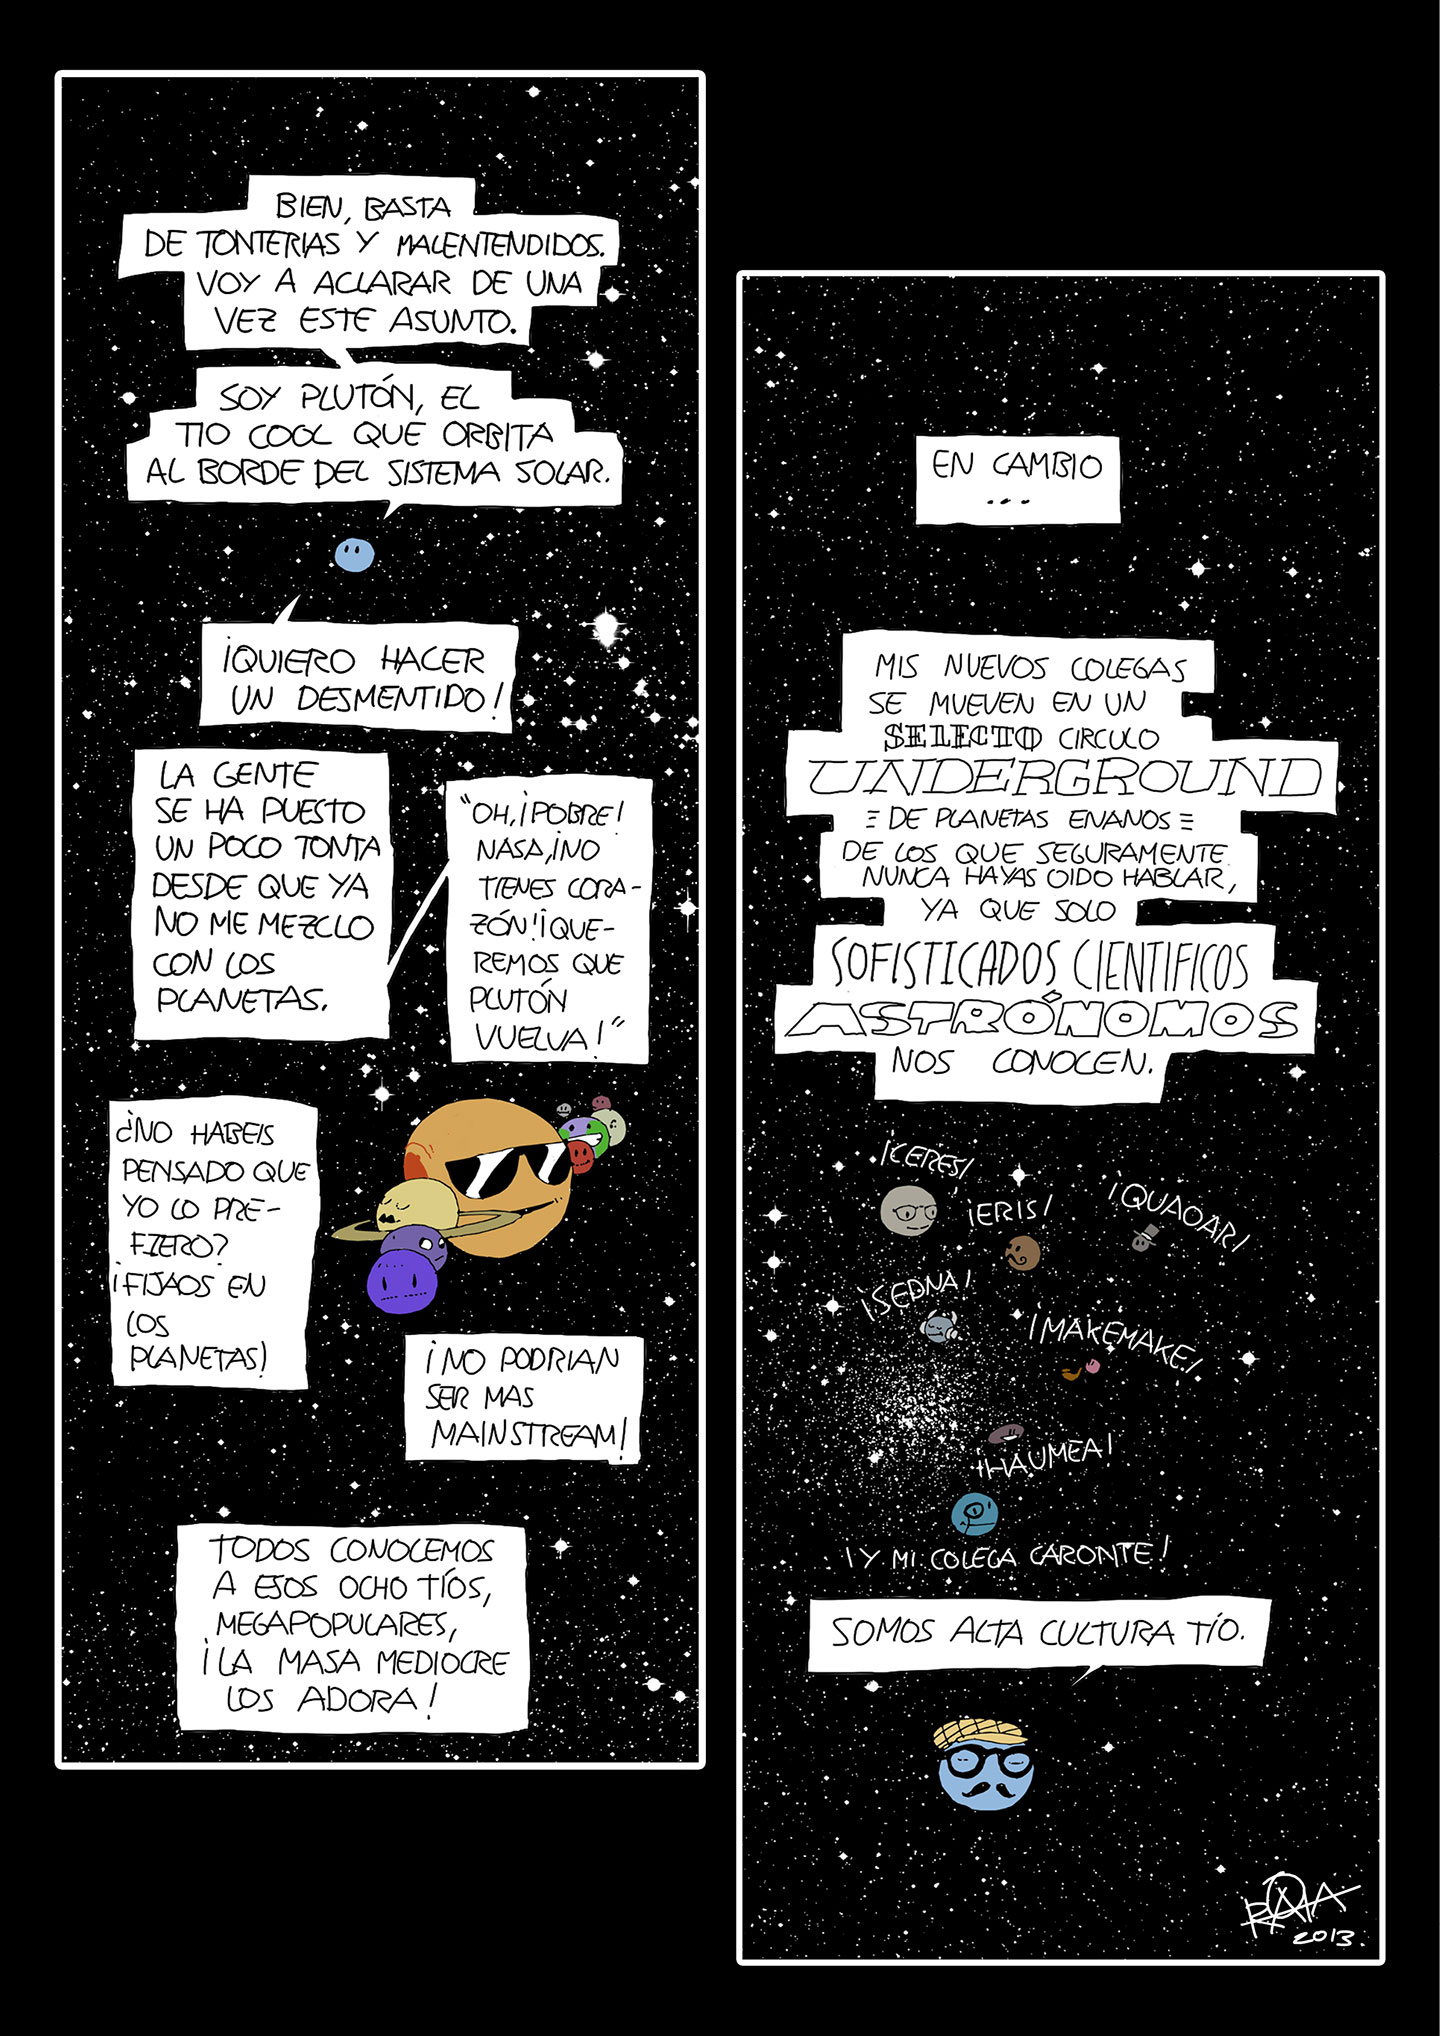 BIEN, BASTA
DE TONTERIAS Y MALENTENDIDOS.
VOY A ACLARAR DE UNA
VEZ ESTE ASUNTO.
SOY PLUTÓN, EL
TIO COOL QUE ORBITA
AL BORDE DEL SISTEMA SOLAR.
¡QUIERO HACER
UN DESMENTIDO!
LA GENTE
SE HA PUESTO
UN POCO TONTA
DESDE QUE YA
NO ME MEZCLO
CON LOS
PLANETAS.
"OH, ¡POBRE!
NASA, ¡NO
TIENES CORA-
ZÓN! ¡QUE-
REMOS QUE
PLUTÓN
VUELVA!"
¿NO HABEIS
PENSADO QUE
YO LO PRE-
FIERO?
¡FIJAOS EN
LOS
PLANETAS!
¡NO PODRIAN
SER MAS
MAINSTREAM!
TODOS CONOCEMOS
A ESOS OCHO TÍOS,
MEGAPOPULARES,
¡LA MASA MEDIOCRE
LOS ADORA!
EN CAMBIO
...
MIS NUEVOS COLEGAS
SE MUEVEN EN UN
SELECTO CIRCULO
UNDERGROUND
DE PLANETAS ENANOS
DE LOS QUE SEGURAMENTE
NUNCA HAYAS OIDO HABLAR,
YA QUE SOLO
SOFISTICADOS CIENTIFICOS
ASTRÓNOMOS
NOS CONOCEN.
¡CERES!
¡ERIS!
¡QUAOAR!
¡SEDNA!
¡MAKEMAKE!
¡HAUMEA!
¡Y MI COLEGA CARONTE!
SOMOS ALTA CULTURA TÍO.
2013.